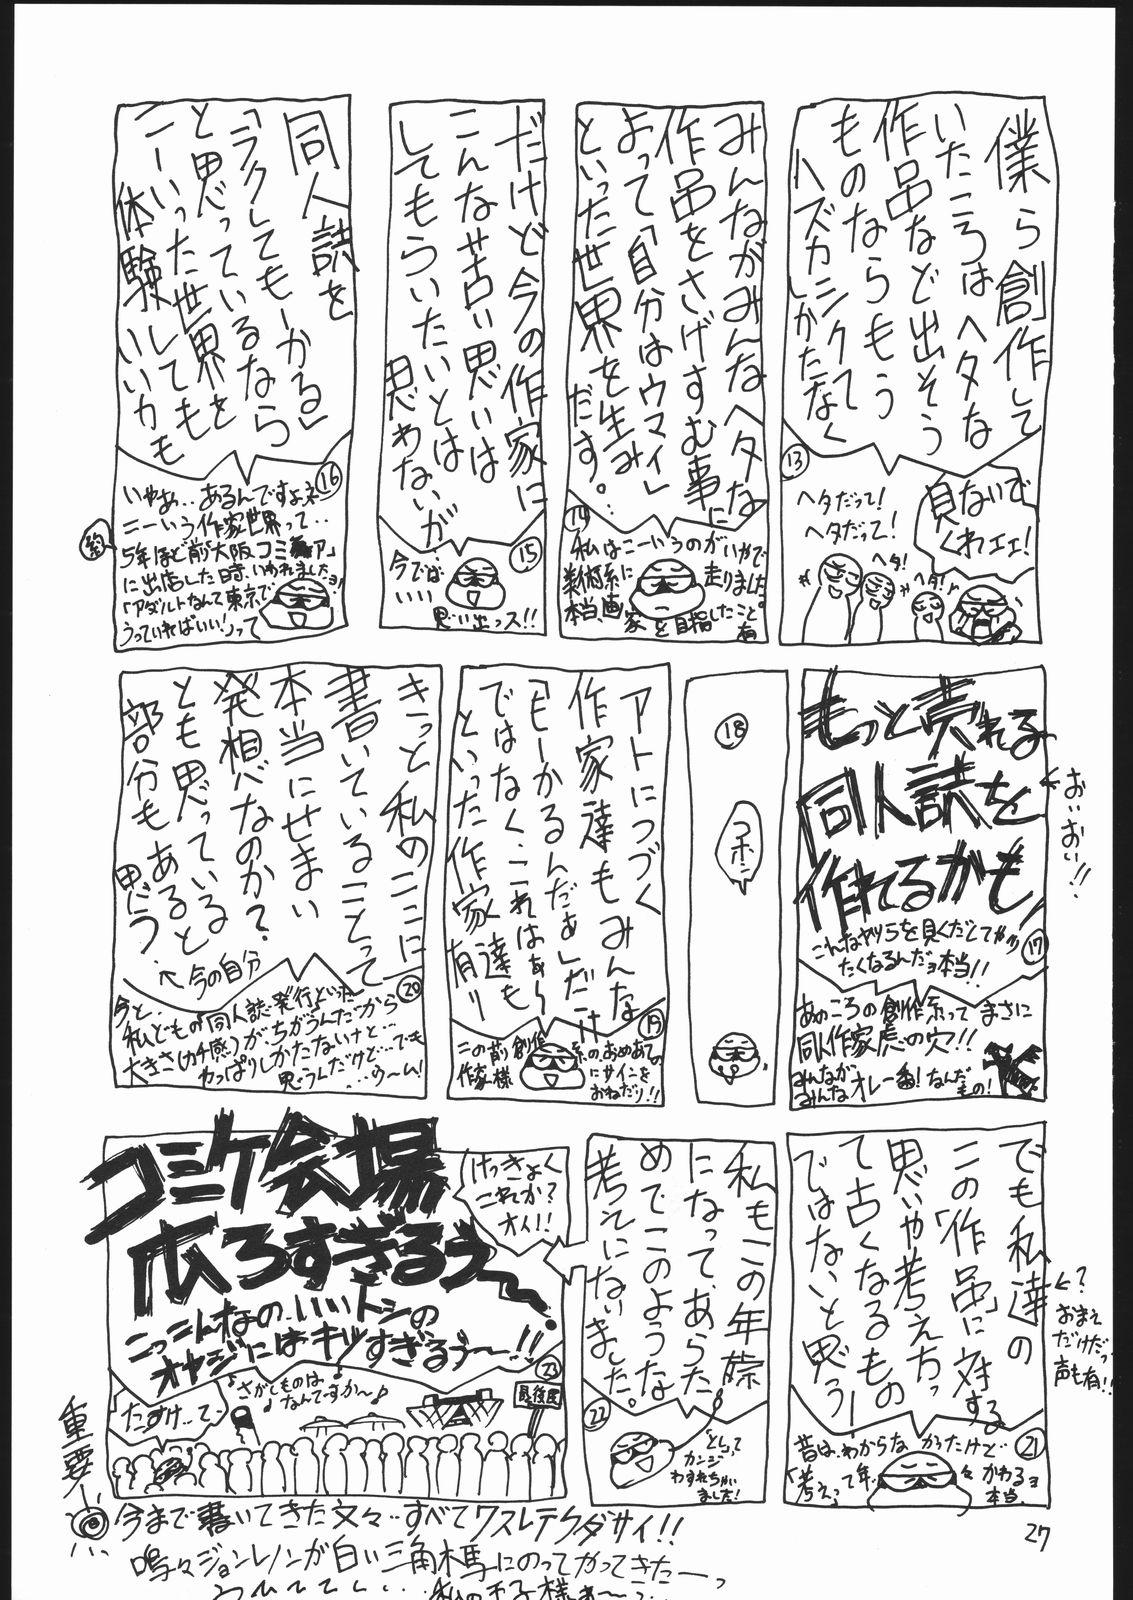 僕ら創作して
いたころはヘタな
作品など出そう
ものならもう
ハズカシクて
しかたなく
⑬
見ないで
くれェェ!
ヘタだって!
ヘタだって!
ヘタ!
ヘタ!
みんながみんなヘタな
作品をさげすむ事に
よって「自分はウマイ」
といった世界を生み
だす。
⑭
私はこーいうのがいやで
美術系に走りました
本当、画家を目指したこと有
だけど今の作家に
こんな苦い思いは
してもらいたいとは
思わないが
⑮
今では‥
いい
思い出っス!!
同人誌を
「ラクしてもーかる」
と思っているなら
こーいった世界を
体験しても
いいかも
⑯
いやぁ‥あるんですよネ
こーいう作家世界って‥
5年ほど前大阪コミ
に出店した時、いわれましたョ!
「アダルトなんて東京で
うっていればいい!」って
もっと売れる
同人誌を
作れるかも!
←おいおい!!
⑰
こんなヤツらを見くだしてやり
たくなるんだョ本当!!
あのころの創作系ってまさに
同人作家虎の穴!!
みんなが
みんなオレ一番!なんだ
もの!
⑱
コホン
アトにつづく
作家達もみんな
「もーかるんだぁ」だけ
ではなく、これはぁ~
といった作家達も
有り
⑲
この前創作系のおめあての
作家様にサインを
おねだり!!
きっと私のここに
書いていることって
本当にせまい
発相なのか?
とも思っていると
部分もあると
思う。
←今の自分
⑳
今と、
私どもの「同人誌発行」といった
大きさ(カチ感)が、ちがうんだから
やっぱりしかたないけど…
思うんだけど…でも
…ウーム!
でも私達の
この「作品」に対する
思いや考えちっ
て古くなるもの
ではないと思う!
←?
おまえ
だけだっ
声も有!!
㉑
昔は、わからなかったけど
「考え」って年々かわるョ
本当。
私もこの年齢
になって、あらた
めてこのような
考えにないました。
㉒
「とし」って
カンジ
わすれちゃい
ました!
けっきょく
これか?
オイ!!
コミケ会場
広ろすぎるぅ~
こっこんなの‥いいトシの
オヤジにはキツすぎるぅ~!!
㉓
♪さがしものは
なんですか~♪
たすけ…て…
最後尾
重要
今まで書いてきた文々‥すべてワスレテクダサイ!!
鳴々ジョンレノンが白い三角木馬にのってやってきたーっ
27